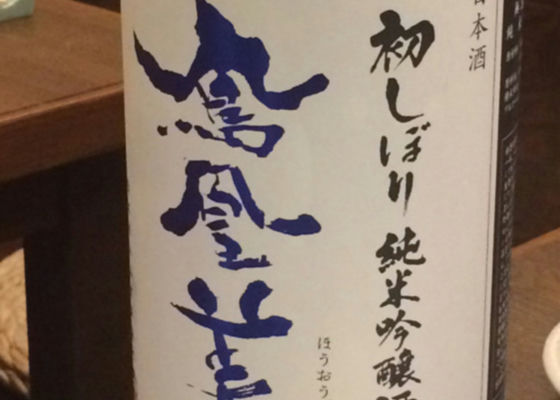 日本酒
初しぼり 純米吟醸酒
鳳凰美
ほうおう